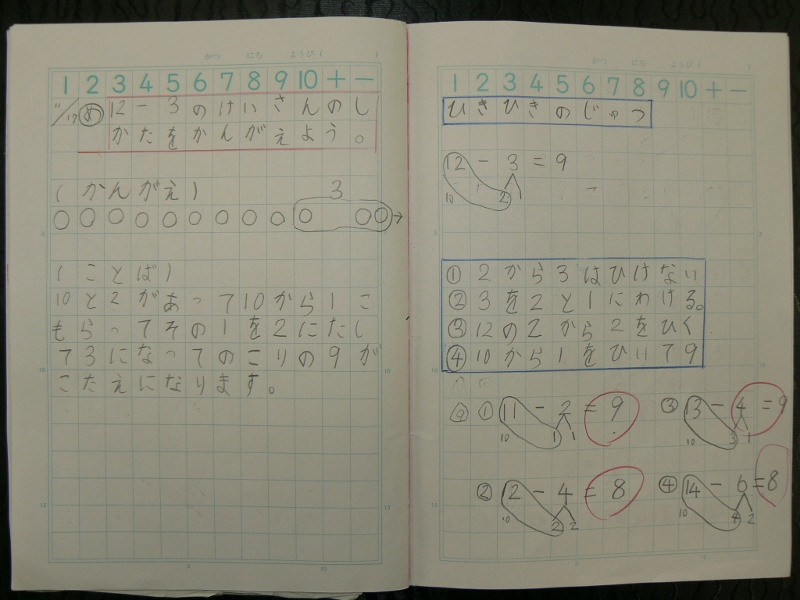 がつ にち ようび ( 1
1 2 3 4 5 6 7 8 9 10 + −
11/17 め 12−3のけいさんのし
かたをかんがえよう。
(かんがえ) 3
(ことば)
10と2があって10から1こ
もらってその1を2にたし
て3になってのこりの9が
こたえになります。
がつ にち ようび (
1 2 3 4 5 6 7 8 9 10 + −
ひきひきのじゅつ
12 − 3 = 9
10 2 1
① 2から3はひけない
② 3を2と1にわける。
③ 12の2から2をひく
④ 10から1をひいて9
① 11 − 2 = 9
10 1 1
③ 13 − 4 = 9
10 3 1
② 12 − 4 = 8
10 2 2
④ 14 − 6 = 8
10 4 2